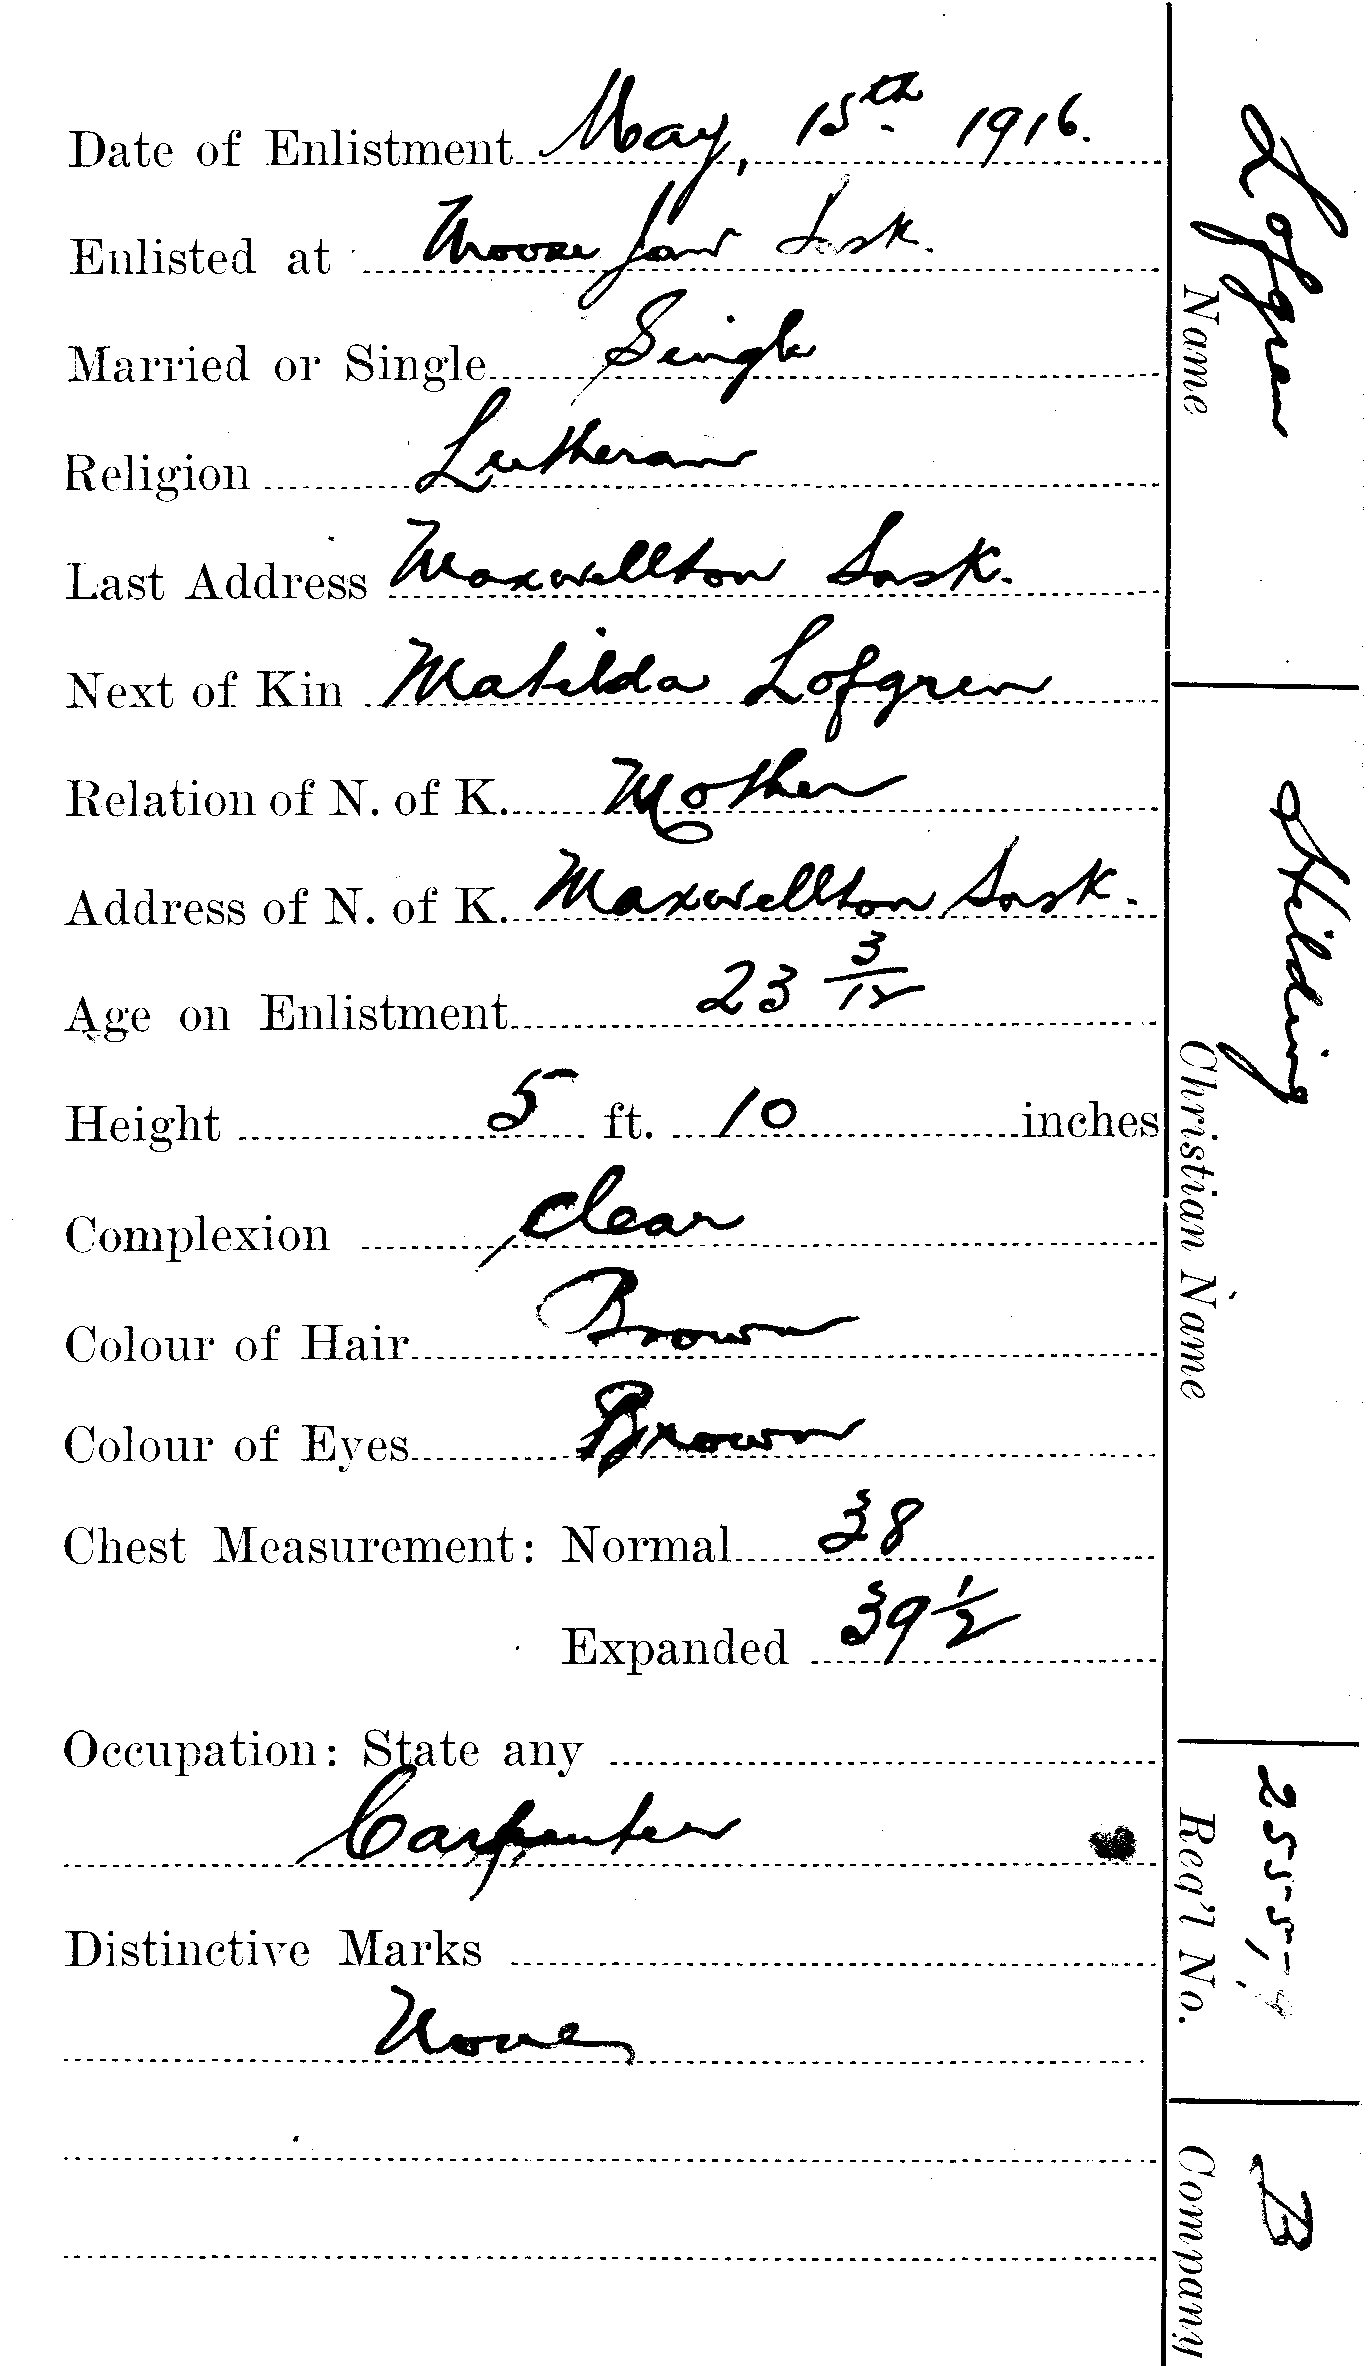 Date of Enlistment May, 15th 1916.
Enlisted at Moose Jaw Sask.
Married or Single Single
Religion Lutheran
Last Address Maxwellton Sask.
Next of Kin Matilda Lofgren
Relation of N. of K. Mother
Address of N. of K. Maxwellton Sask.
Age on Enlistment 23 3/12
Height 5 ft. 10 inches
Complexion Clear
Colour of Hair Brown
Colour of Eyes Brown
Chest Measurement: Normal 38
Expanded 39 1/2
Occupation: State any
Carpenter
Distinctive Marks
None
Lofgren
Name
Hilding
Christian Name
Reg'l No.
B
Company